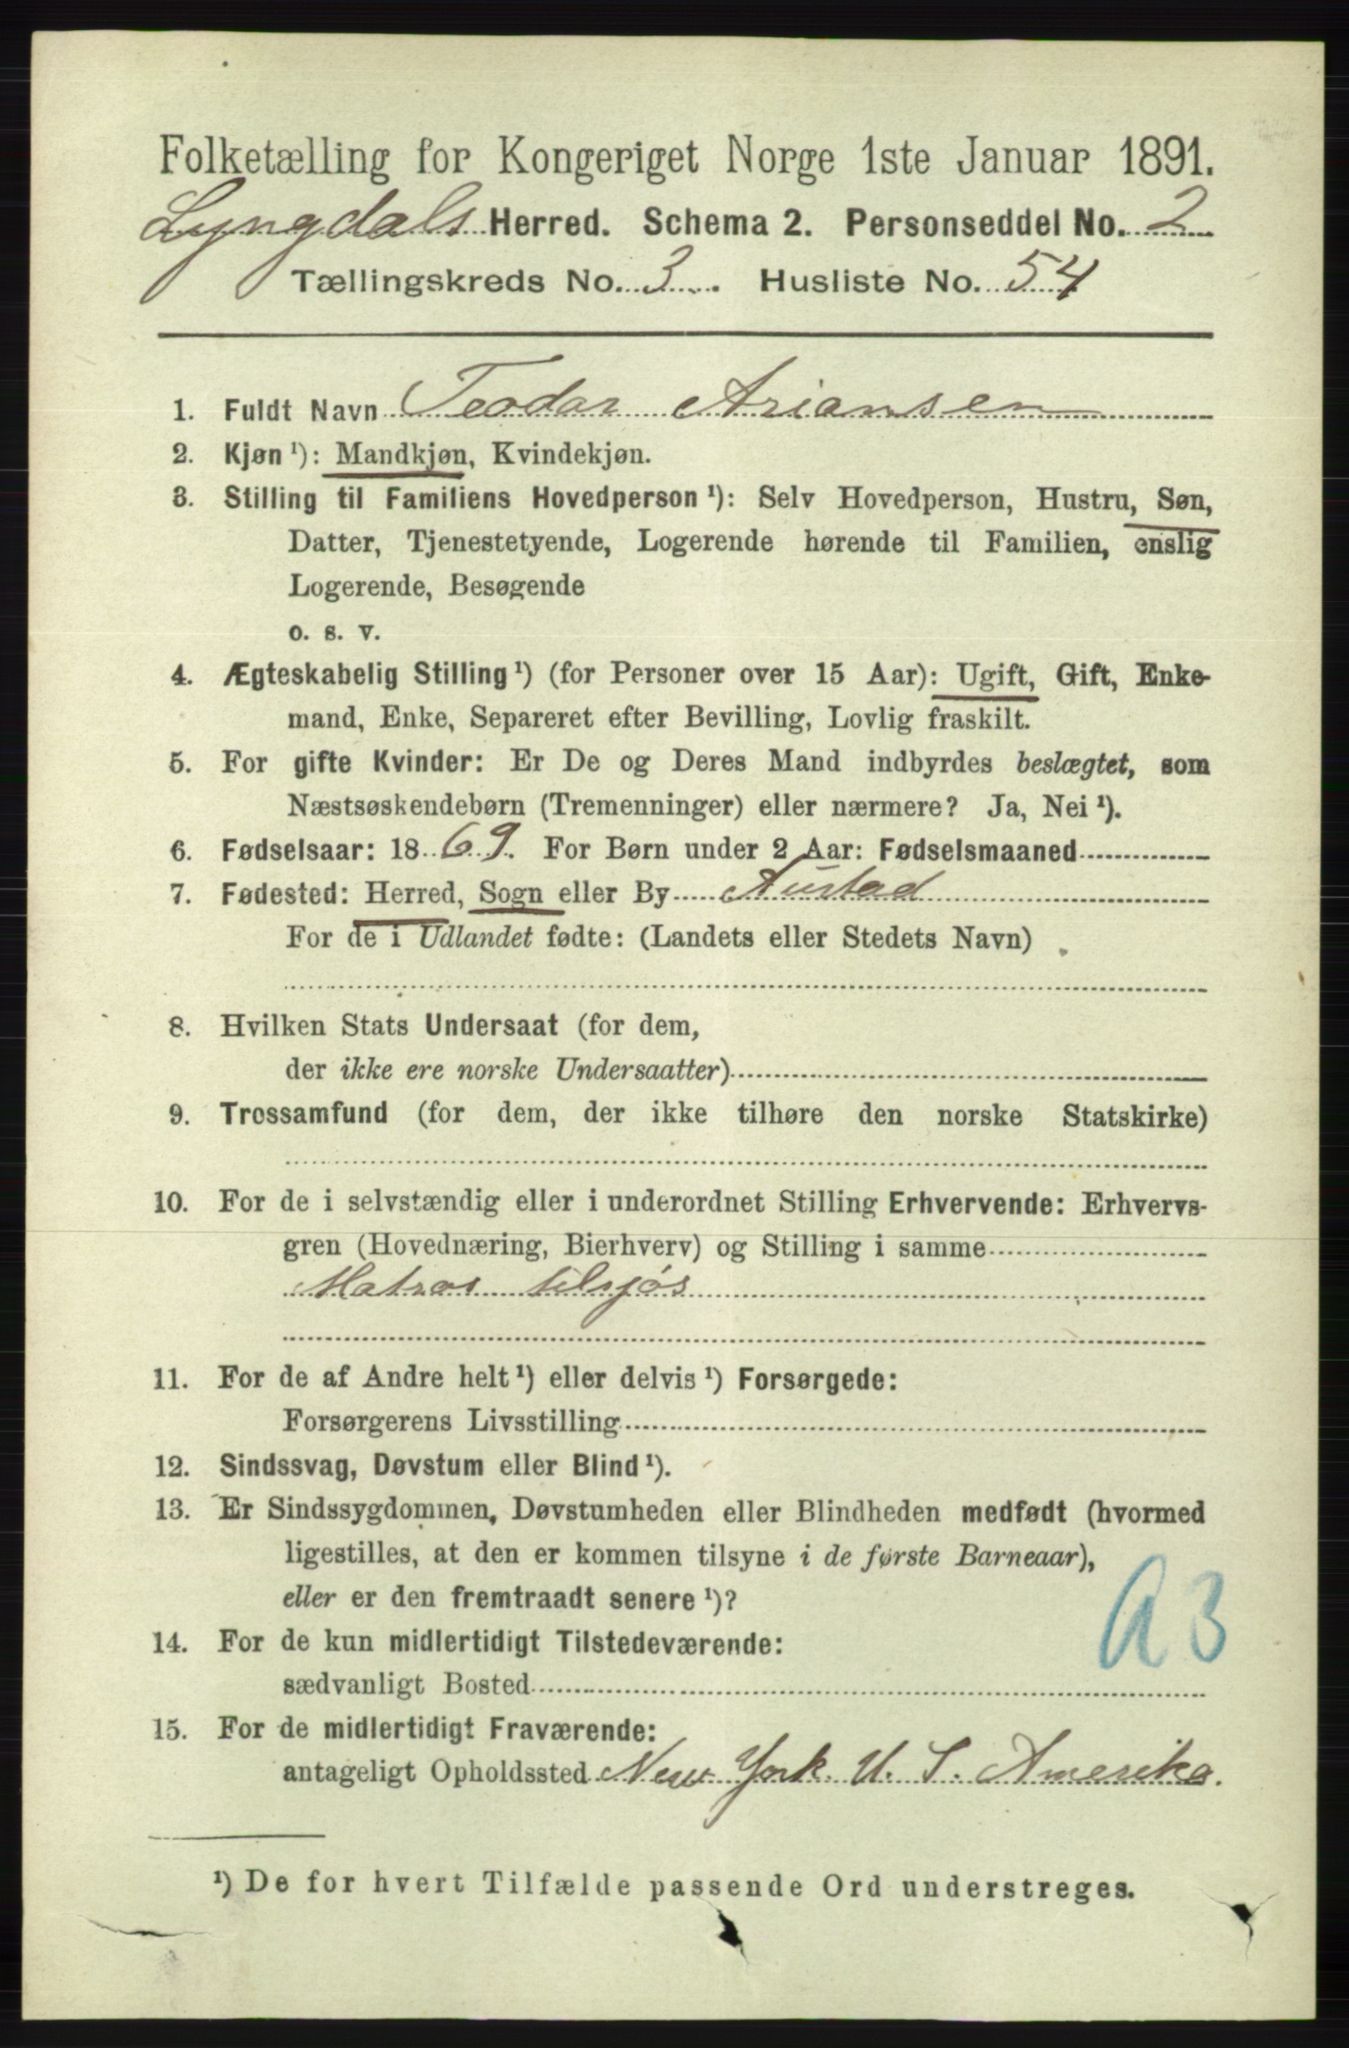 Folketælling for Kongeriget Norge 1ste Januar 1891.
Lyngdals Herred. Schema 2. Personseddel No. 2
Tællingskreds No. 3. Husliste No. 54
1. Fuldt Navn Teodor Ariansen
2. Kjøn ¹): Mandkjøn, Kvindekjøn.
3. Stilling til Familiens Hovedperson ¹): Selv Hovedperson, Hustru, Søn,
Datter, Tjenestetyende, Logerende hørende til Familien, enslig
Logerende, Besøgende
o. s. v.
4. Ægteskabelig Stilling ¹) (for Personer over 15 Aar): Ugift, Gift, Enke-
mand, Enke, Separeret efter Bevilling, Lovlig fraskilt.
5. For gifte Kvinder: Er De og Deres Mand indbyrdes beslægtet, som
Næstsøskendebørn (Tremenninger) eller nærmere? Ja, Nei ¹).
6. Fødselsaar: 1869. For Børn under 2 Aar: Fødselsmaaned
7. Fødested: Herred, Sogn eller By Austad
For de i Udlandet fødte: (Landets eller Stedets Navn)
8. Hvilken Stats Undersaat (for dem,
der ikke ere norske Undersaatter)
9. Trossamfund (for dem, der ikke tilhøre den norske Statskirke)
10. For de i selvstændig eller i underordnet Stilling Erhvervende: Erhvervs-
gren (Hovednæring, Bierhverv) og Stilling i samme
Matros tilsjøs
11. For de af Andre helt ¹) eller delvis ¹) Forsørgede:
Forsørgerens Livsstilling
12. Sindssvag, Døvstum eller Blind ¹).
13. Er Sindssygdommen, Døvstumheden eller Blindheden medfødt (hvormed
ligestilles, at den er kommen tilsyne i de første Barneaar),
eller er den fremtraadt senere ¹)?
a3
14. For de kun midlertidigt Tilstedeværende:
sædvanligt Bosted
15. For de midlertidigt Fraværende:
antageligt Opholdssted New York U. S. Amerika.
¹) De for hvert Tilfælde passende Ord understreges.